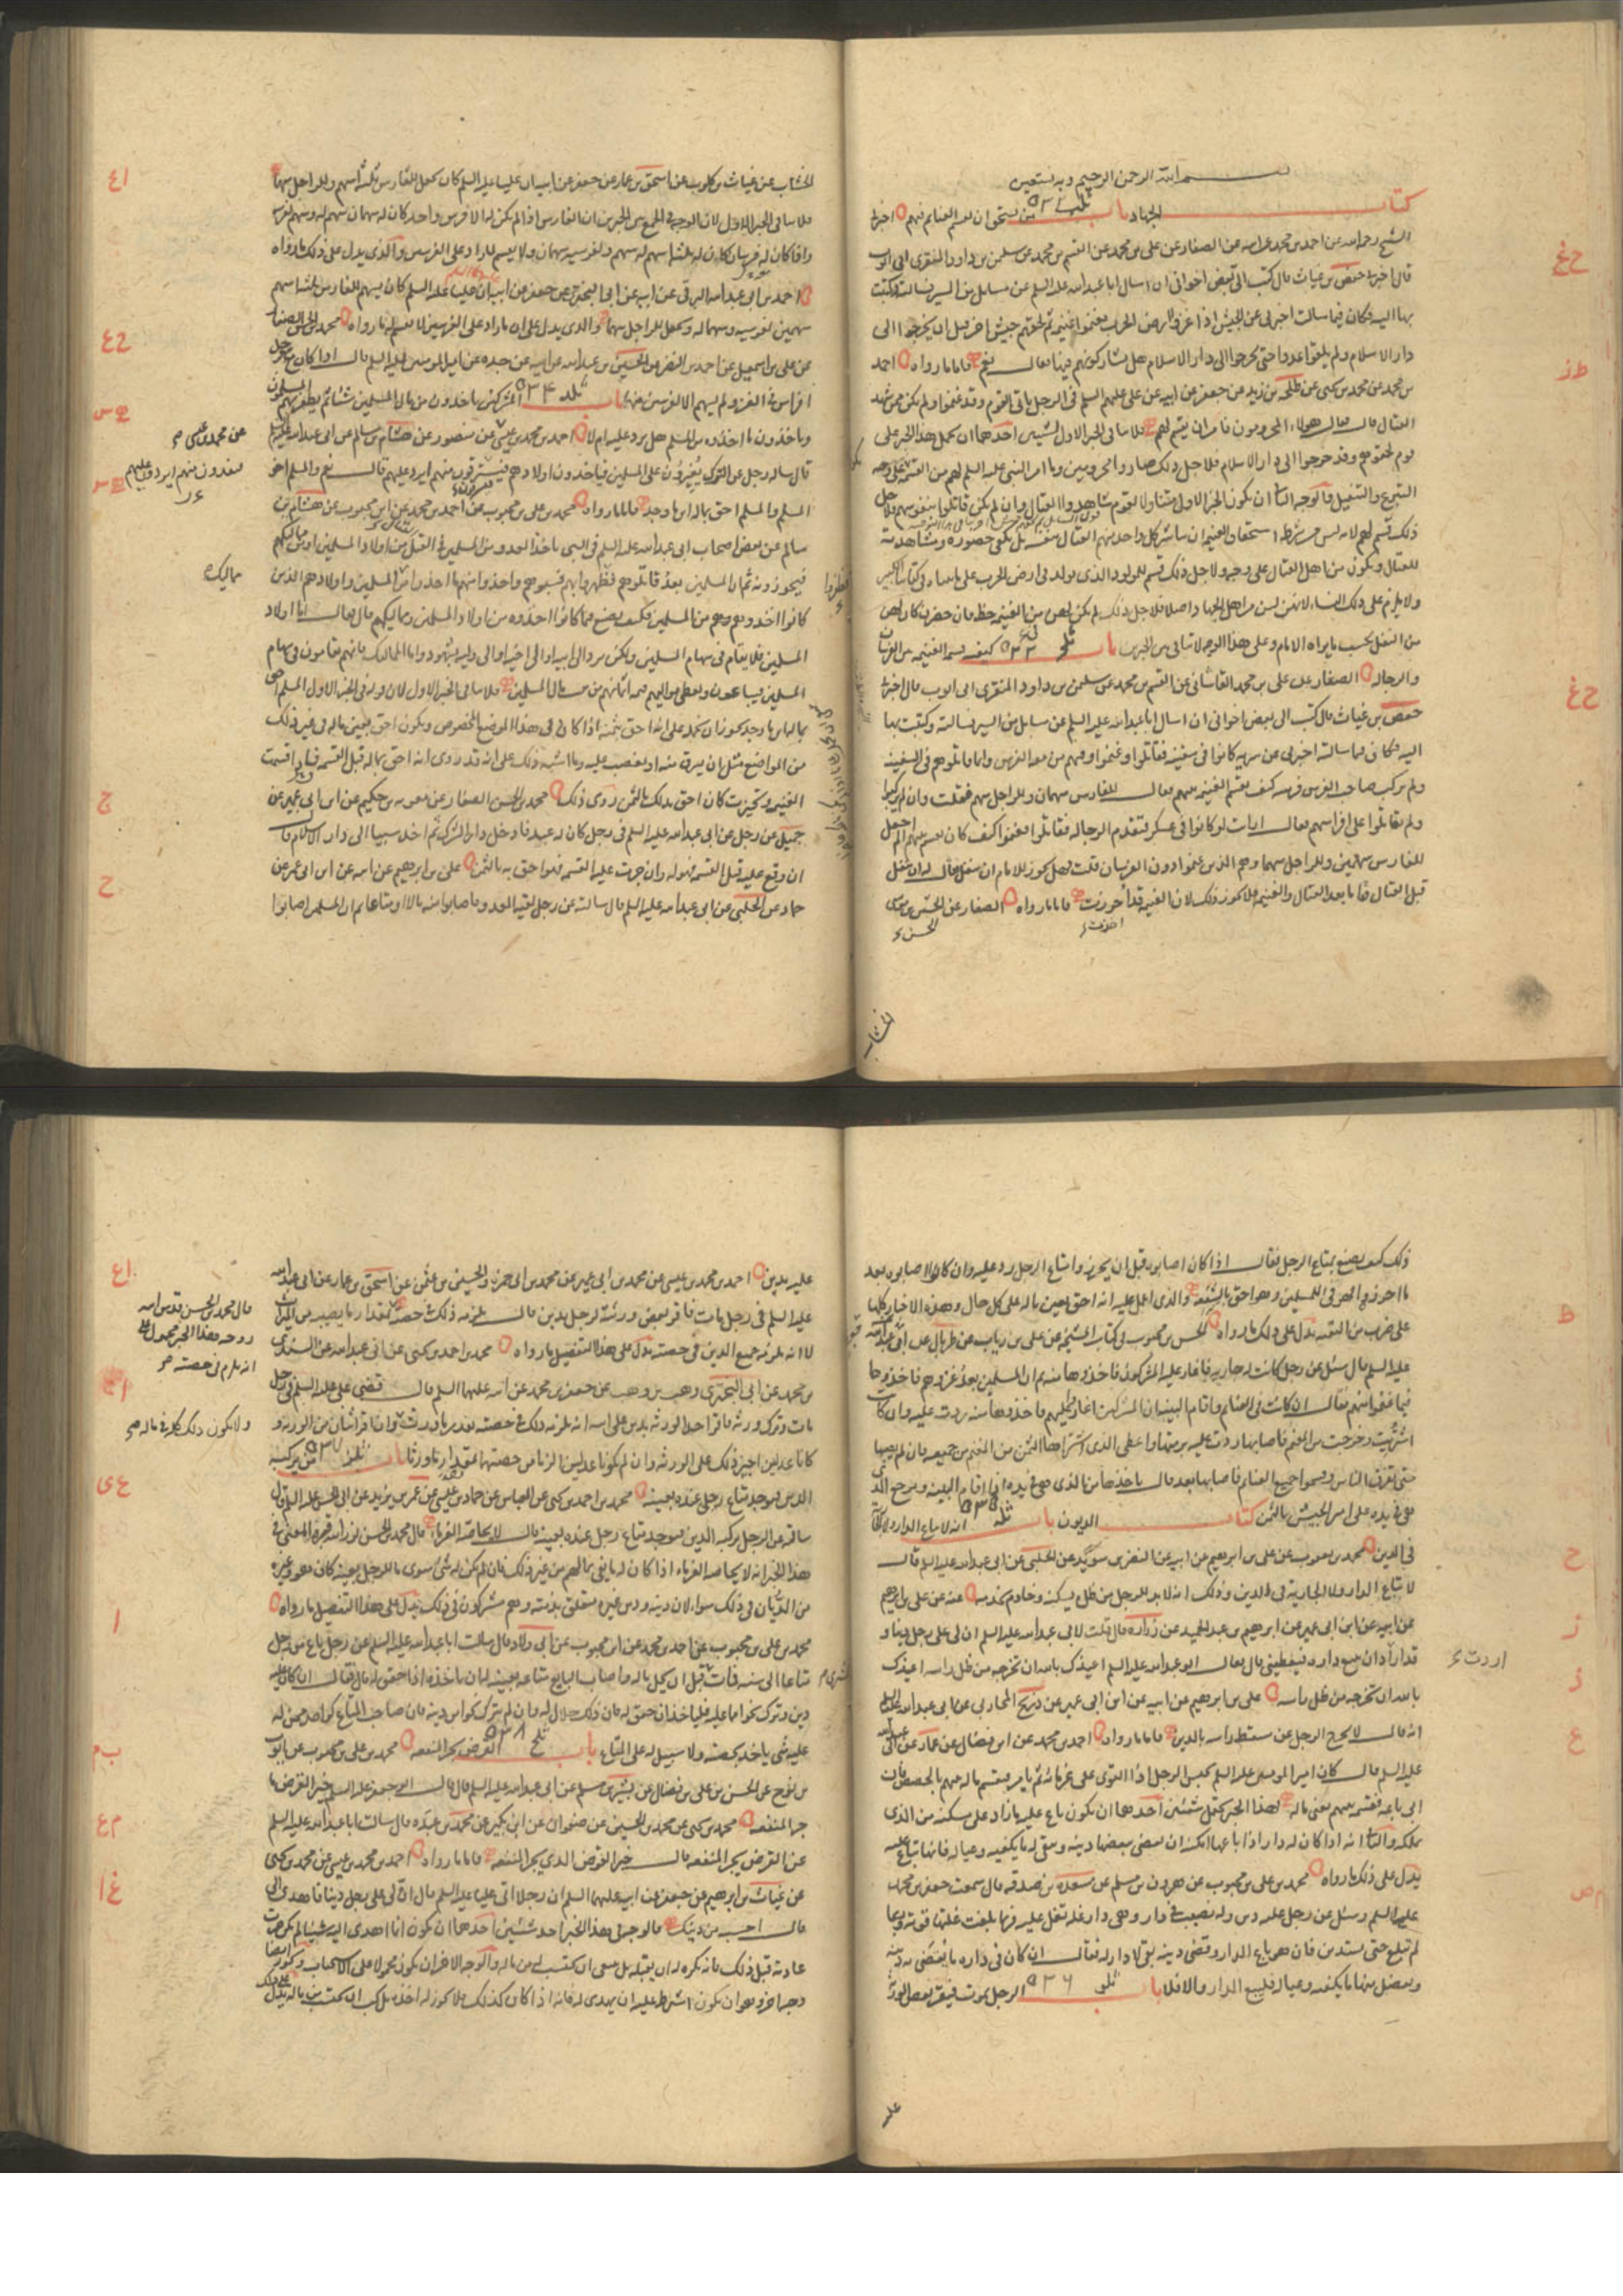 بسم الله الرحمن الرحيم وبه نستعين
كتاب الجهاد باب من يستحق ان يقسم الغنايم فيهم اخبرنى
الشيخ رحمه الله عن احمد بن محمد عن ابيه عن الصفار عن على بن محمد عن القسم بن محمد عن سليمن بن داود المنقرى ابى ايوب
قال اخبرنا حفص بن غياث قال كتب الى بعض اخوانى ان اسال ابا عبد الله عليه السلم عن مسايل من السير فسالته وكتبت
بها اليه فكان فيما سالت اخبرنى عن الجيش اذا غزوا ارض الحرب فغنموا غنيمة ثم لحقهم جيش اخر قبل ان يخرجوا الى
دار الاسلام ولم يلقوا عدوا حتى يخرجوا الى دار الاسلام هل يشاركونهم فيها فقال نعم فاما ما رواه احمد
بن محمد عن محمد بن يحيى عن طلحة بن زيد عن جعفر عن ابيه عن على عليهم السلم فى الرجل ياتى القوم وقد غنموا ولم يكن ممن شهد
القتال قال فقال هؤلاء المحرومون فامر ان يقسم لهم فلا ينافى الخبر الاول لشيئين احدهما ان نحمل هذا الخبر على
قوم لحقوهم وقد خرجوا الى دار الاسلام فلاجل ذلك صاروا محرومين وما امر النبى عليه السلم لهم من القسمة على وجه
التبرع والتنفيل والوجه الثانى ان يكون الخبر الاول متناولا لقوم شاهدوا القتال وان لم يكن قاتلوا بنفوسهم فلاجل
ذلك قسم لهم لانه ليس من شرط استحقاق الغنيمة ان يباشر كل واحد منهم القتال بنفسه بل يكفى حضوره ومشاهدته
للقتال ويكون من اهل القتال على وجه ولاجل ذلك قسم للمولود الذى يولد فى ارض الحرب على ما بيناه فى كتابنا الكبير
ولا يلزم على ذلك النساء لانهن ليس من اهل الجهاد اصلا فلاجل ذلك لم يكن لهن من الغنيمة حظ فان حضرن كان لهن
من النفل بحسب ما يراه الامام وعلى هذا الوجه لا تنافى بين الخبرين باب ٥٣٣ كيفية قسمة الغنيمة بين الفرسان
والرجالة الصفار عن على بن محمد القاشانى عن القسم بن محمد عن سليمن بن داود المنقرى ابى ايوب قال اخبرنا
حفص بن غياث قال كتب الى بعض اخوانى ان اسال ابا عبد الله عليه السلم عن مسايل من السير فسالته وكتبت بها
اليه فكان فيما سالته اخبرنى عن سرية كانوا فى سفينة فقاتلوا وغنموا وفيهم من معه الفرس وانما قاتلوهم فى السفينة
ولم يركب صاحب الفرس فرسه كيف تقسم الغنيمة بينهم فقال للفارس سهمان وللراجل سهم فقلت وان لم يركبوا
ولم يقاتلوا على افراسهم فقال ارايت لو كانوا فى عسكر فتقدم الرجالة فقاتلوا فغنموا كيف كان يقسم بينهم الم اجعل
للفارس سهمين وللراجل سهما وهم الذين غنموا دون الفرسان قلت فهل يجوز للامام ان ينفل فقال له ان ينفل
قبل القتال فاما بعد القتال والغنيمة فلا يجوز ذلك لان الغنيمة قد احرزت فاما ما رواه الصفار عن الحسن بن موسى
الخشاب
الخشاب عن غياث بن كلوب عن اسحق بن عمار عن جعفر عن ابيه ان عليا عليه السلم كان يجعل للفارس ثلثة اسهم وللراجل سهما
فلا ينافى الخبر الاول لان الوجه فى الجمع بين الخبرين ان الفارس اذا لم يكن له الا فرس واحد كان له سهمان سهم له وسهم لفرسه
واذا كان له فرسان كان له ثلثة اسهم له سهم ولفرسيه سهمان ولا يسهم لما زاد على الفرسين والذى يدل على ذلك ما رواه
احمد بن ابى عبد الله البرقى عن ابيه عن ابى البخترى عن جعفر عن ابيه ان عليا عليه السلم كان يسهم للفارس ثلثة اسهم
سهمين لفرسيه وسهما له ويجعل للراجل سهما والذى يدل على ان ما زاد على الفرسين لا يقسم له ما رواه محمد بن الحسن الصفار
عن على بن اسمعيل عن احمد بن النضر عن الحسين بن عبد الله عن ابيه عن جده عن امير المومنين عليه السلم قال اذا كان مع الرجل
افراس فى الغزو لم يسهم الا لفرسين منها باب ٥٣٤ المشركين ياخذون من مال المسلمين شيئا ثم يظفر بهم المسلمون
وياخذون ما اخذوه من المسلم هل يرد عليه ام لا احمد بن محمد بن عيسى عن منصور عن هشام بن سالم عن ابى عبد الله عليه السلم
قال ساله رجل عن الترك يغيرون على المسلمين فياخذون اولادهم فيسترقون منهم ايرد عليهم قال نعم والمسلم اخو
المسلم والمسلم احق بماله اينما وجده فاما ما رواه محمد بن على بن محبوب عن احمد بن محمد عن ابن محبوب عن هشام بن
سالم عن بعض اصحاب ابى عبد الله عليه السلم فى السبى ياخذ العدو من المسلمين فى القتال من اولاد المسلمين او من مماليكهم
فيحوزونه ثم ان المسلمين بعد قاتلوهم فظهروا بهم فسبوهم واخذوا منهم ما اخذوا من المسلمين واولادهم الذين
كانوا اخذوهم من المسلمين فكيف يصنع بما كانوا اخذوه من اولاد المسلمين ومماليكهم قال فقال اما اولاد
المسلمين فلا يقام فى سهام المسلمين ولكن يرد الى ابيه او الى اخيه او الى وليه بشهود واما المماليك فانهم يقامون فى سهام
المسلمين فيباعون ويعطى مواليهم قيمة اثمانهم من بيت مال المسلمين فلا ينافى الخبر الاول لان قوله فى الخبر الاول المسلم احق
بماله اينما وجده يجوز ان نحمله على انه احق بثمنه اذا كان فى هذا الموضع المخصوص ويكون احق بعين ماله فى غير ذلك
من المواضع مثل ان يسرق منه او يغصب عليه وما اشبه ذلك على انه قد روى انه احق بماله قبل القسمة فاذا قسمت
الغنيمة وتحيزت كان احق بذلك بالثمن روى ذلك محمد بن الحسن الصفار عن معوية بن حكيم عن ابن ابى عمير عن
جميل عن رجل عن ابى عبد الله عليه السلم فى رجل كان له عبد فادخل دار الشرك ثم اخذ سبيا الى دار الاسلام قال
ان وقع عليه قبل القسمة فهو له وان جرت عليه القسمة فهو احق به بالثمن على بن ابرهيم عن ابيه عن ابن ابى عمير عن
حماد عن الحلبى عن ابى عبد الله عليه السلم قال سالته عن رجل لقيه العدو واصابوا منه مالا او متاعا ثم ان المسلمين اصابوا
ذلك كيف يصنع بمتاع الرجل فقال اذا كان اصابوه قبل ان يحوزوا متاع الرجل رد عليه وان كانوا اصابوه بعد
ما احرزوه فهو فى للمسلمين وهو احق بالشفعة والذى اعمل عليه انه احق بعين ماله على كل حال وهذه الاخبار كلها
على ضرب من التقية يدل على ذلك ما رواه الحسن بن محبوب فى كتاب المشيخة عن على بن رياب عن طربال عن ابى جعفر
عليه السلم قال سئل عن رجل كانت له جارية فاغار عليه المشركون فاخذوها منه ثم ان المسلمين بعد غزوهم فاخذوها
فيما غنموا منهم فقال ان كانت فى الغنايم واقام البينة ان المشركين اغاروا عليهم فاخذوها منه ردت عليه وان كانت
اشتريت وخرجت من المغنم فاصابها ردت عليه برمتها واعطى الذى اشتراها الثمن من المغنم من جميعه فان لم يصبها
حتى تفرق الناس وقسموا جميع الغنايم فاصابها بعد قال ياخذها من الذى هى فى يده اذا اقام البينة ويرجع الذى
هى فى يده على امير الجيش بالثمن كتاب الديون باب ٥٣٥ انه لا تباع الدار ولا الجارية
فى الدين محمد بن يعقوب عن على بن ابرهيم عن ابيه عن النضر بن سويد عن الحلبى عن ابى عبد الله عليه السلم قال
لا تباع الدار ولا الجارية فى الدين وذلك انه لا بد للرجل من ظل يسكنه وخادم يخدمه عنه عن على بن ابرهيم
عن ابيه عن ابن ابى عمير عن ابرهيم بن عبد الحميد عن زرارة قال قلت لابى عبد الله عليه السلم ان لى على رجل دينا و
قد اراد ان يبيع داره فيقضينى قال فقال ابو عبد الله عليه السلم اعيذك بالله ان تخرجه من ظل راسه اعيذك
بالله ان تخرجه من ظل راسه على بن ابرهيم عن ابيه عن ابن ابى عمير عن ذريح المحاربى عن ابى عبد الله عليه السلم
انه قال لا يخرج الرجل عن مسقط راسه بالدين فاما ما رواه احمد بن محمد عن ابن فضال عن عمار عن ابى عبد الله
عليه السلم قال كان امير المومنين عليه السلم يحبس الرجل اذا التوى على غرمائه ثم يامر فيقسم ماله بينهم بالحصص فان
ابى باعه فقسمه بينهم يعنى ماله فهذا الخبر يحتمل شيئين احدهما ان يكون باع عليه ما زاد على مسكنه من الذى
يملكه والثانى انه اذا كان له دار اذا باعها امكنه ان يقضى ببعضها دينه ويبقى له ما يكفيه وعياله فانها تباع عليه
يدل على ذلك ما رواه محمد بن على بن محبوب عن هرون بن مسلم عن مسعدة بن صدقة قال سمعت جعفر بن محمد
عليه السلم وسئل عن رجل عليه دين وله نصيب فى دار وهى دار غلة تغل عليه فربما بلغت غلتها قوته وربما
لم تبلغ حتى يستدين فان هو باع الدار وقضى دينه بقى لا دار له فقال ان كان فى داره ما يقضى به دينه
ويفضل منها ما يكفيه وعياله فليبع الدار والا فلا باب ٥٣٦ الرجل يموت فيقر بعض الورثة
عليه
عليه بدين احمد بن محمد بن عيسى عن محمد بن ابى عمير عن محمد بن ابى حمزة والحسين بن عثمن عن اسحق بن عمار عن ابى عبد الله
عليه السلم فى رجل مات فاقر بعض ورثته لرجل بدين قال يلزمه ذلك فى حصته بمقدار ما يصيبه من الميراث
لا انه يلزمه جميع الدين فى حصته يدل على هذا التفصيل ما رواه محمد بن احمد بن يحيى عن ابى عبد الله عن السندى
بن محمد عن ابى البخترى وهب بن وهب عن جعفر بن محمد عن ابيه عليهما السلم قال قضى على عليه السلم فى رجل
مات وترك ورثة فاقر احد الورثة بدين على ابيه انه يلزمه ذلك فى حصته بقدر ما ورث وان اقر اثنان من الورثة و
كانا عدلين اجيز ذلك على الورثة وان لم يكونا عدلين الزما من حصتهما بقدر ما ورثا باب ٥٣٧ من يركبه
الدين فيوجد متاع رجل عنده بعينه محمد بن احمد بن يحيى عن العباس عن حماد بن عيسى عن عمر بن يزيد عن ابى الحسن عليه السلم قال
سالته عن الرجل يركبه الدين فيوجد متاع رجل عنده بعينه قال لا يحاصه الغرماء قال محمد بن الحسن نور الله قبره المعنى فى
هذا الخبر انه لا يحاصه الغرماء اذا كان له ما يفى بمالهم من غير ذلك فان لم يكن له شئ سوى مال الرجل بعينه كان هو وغيره
من الديان فى ذلك سواء لان دينه ودين غيره متعلق بذمته وهم مشتركون فى ذلك يدل على هذا التفصيل ما رواه
محمد بن على بن محبوب عن احمد بن محمد عن ابن محبوب عن ابى ولاد قال سالت ابا عبد الله عليه السلم عن رجل باع من رجل
متاعا الى سنة فمات قبل ان يحل ماله واصاب البايع متاعه بعينه له ان ياخذه اذا حقق له قال فقال ان كان عليه
دين وترك نحوا مما عليه فلياخذ ان حقق له فان ذلك حلال له ولو لم يترك نحوا من دينه فان صاحب المتاع كواحد ممن له
عليه شئ ياخذ بحصته ولا سبيل له على المتاع باب ٥٣٨ القرض يجر المنفعة محمد بن على بن محبوب عن ايوب
بن نوح عن الحسن بن على بن فضال عن بشير بن مسلم عن ابى عبد الله عليه السلم قال قال ابو جعفر عليه السلم خير القرض ما
جر المنفعة محمد بن يحيى عن محمد بن الحسين عن صفوان عن ابن بكير عن محمد بن عبدة قال سالت ابا عبد الله عليه السلم
عن القرض يجر المنفعة قال خير القرض الذى يجر المنفعة فاما ما رواه احمد بن محمد بن عيسى عن محمد بن يحيى
عن غياث بن ابرهيم عن جعفر عن ابيه عليهما السلم ان رجلا اتى عليا عليه السلم قال ان لى على رجل دينا فاهدى الى
قال احسبه من دينك فالوجه فى هذا الخبر احد شيئين احدهما ان يكون انما اهدى اليه شيئا لم يكن جرت
عادته قبل ذلك فانه يكره له ان يقبله بل ينبغى ان يحتسب له من ماله والوجه الاخر ان يكون محمولا على الاستحباب ويكون ايضا
وجه اخر وهو ان يكون اشترط عليه ان يهدى له فانه اذا كان كذلك فلا يجوز له اخذه بل يجب ان يحتسب من ماله يدل على ذلك